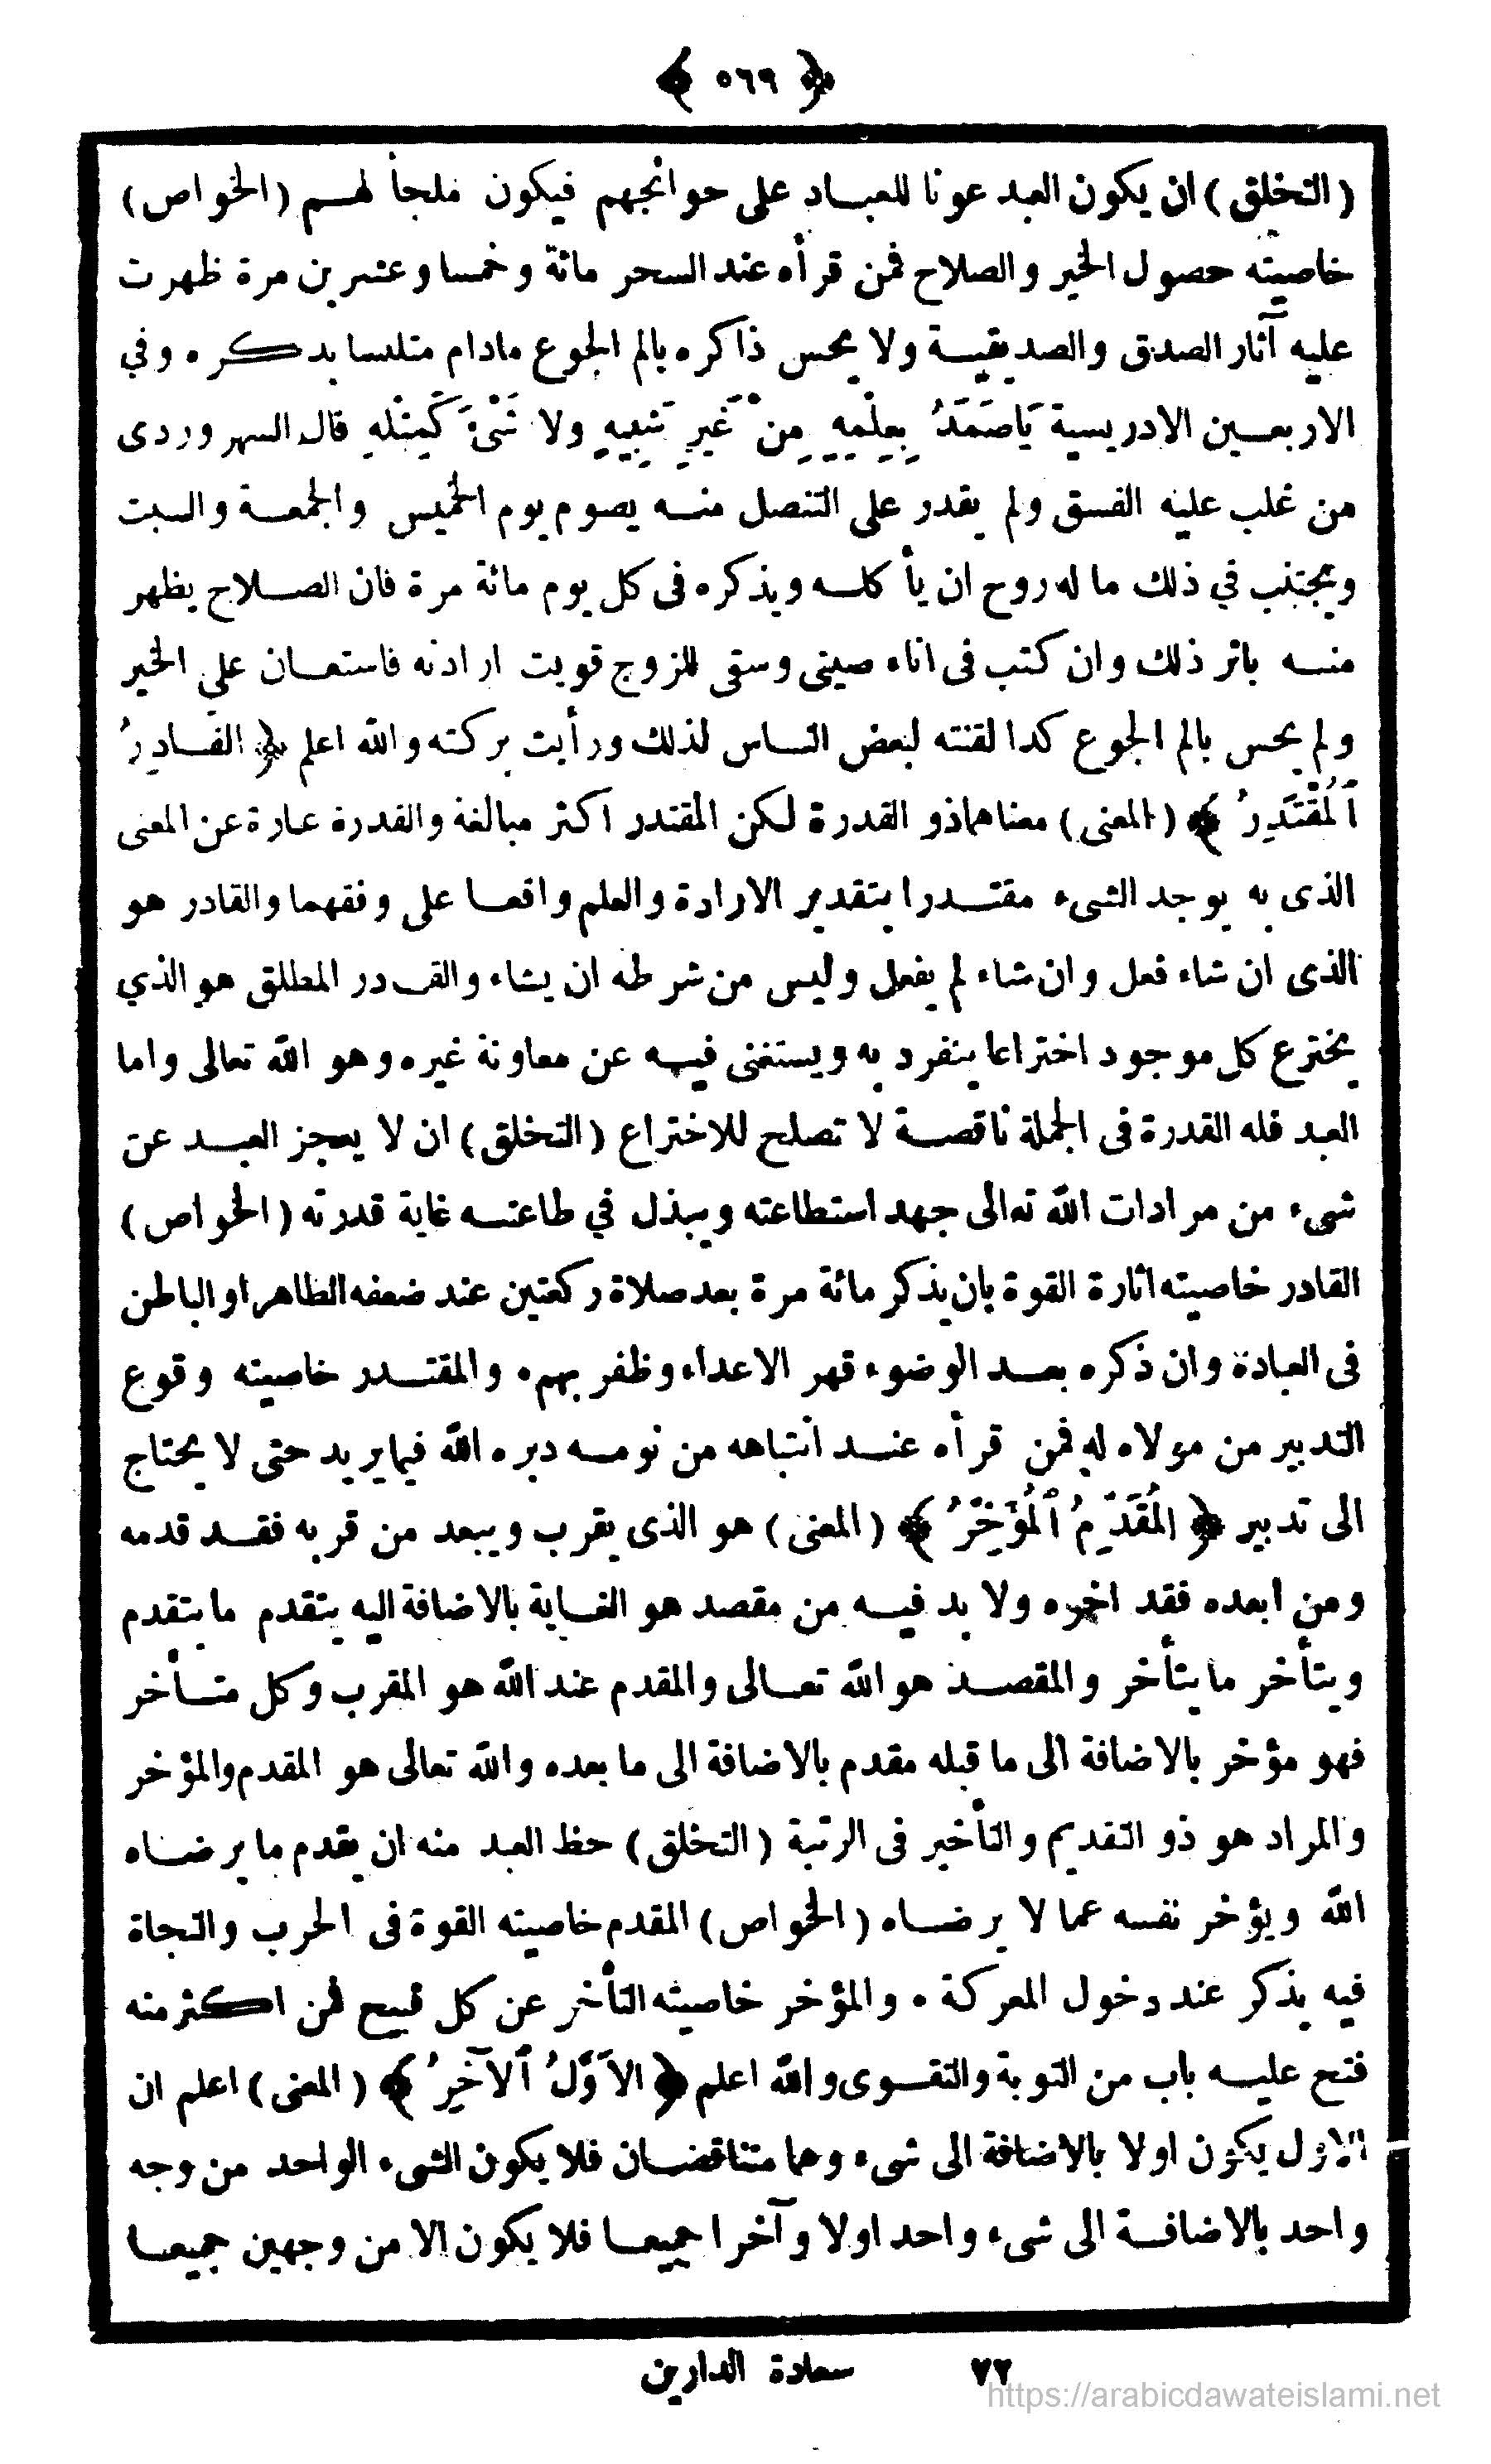 ﴿ ٥٦٩ ﴾
(التخلق) ان يكون العبد عونا للعباد على حوائجهم فيكون ملجأ لهم (الخواص)
خاصيته حصول الخير والصلاح فمن قرأه عند السحر مائة وخمسا وعشرين مرة ظهرت
عليه آثار الصدق والصديقية ولا يحس ذاكره بالم الجوع مادام متلبسا بذكره وفي
الاربعين الادريسية يَاصَمَدُ مِنْ غَيْرِ شَبِيهٍ ولا شَيْءَ كَمِثْلِهِ قال السهروردى
من غلب عليه الفسق ولم يقدر على التنصل منه يصوم يوم الخميس والجمعة والسبت
ويجتنب في ذلك ما له روح ان يأكله ويذكره فى كل يوم مائة مرة فان الصلاح يظهر
منه باثر ذلك وان كتب فى اناء صينى وسقى للزوج قويت ارادته فاستعان علي الخير
ولم يحس بالم الجوع كذا لقنته لبعض الناس لذلك ورأيت بركته والله اعلم ﴿ القَادِرُ
ٱلْمُقْتَدِرُ ﴾ (المعنى) معناهما ذو القدرة لكن المقتدر اكثر مبالغة والقدرة عبارة عن المعنى
الذى به يوجد الشىء مقتدرا بتقدير الارادة والعلم واقعا على وفقهما والقادر هو
الذى ان شاء فعل وان شاء لم يفعل وليس من شرطه ان يشاء والقادر المطلق هو الذي
يخترع كل موجود اختراعا ينفرد به ويستغنى فيه عن معاونة غيره وهو الله تعالى واما
العبد فله القدرة فى الجملة ناقصة لا تصلح للاختراع (التخلق) ان لا يعجز العبد عن
شىء من مرادات الله تعالى جهد استطاعته ويبذل في طاعته غاية قدرته (الخواص)
القادر خاصيته اثارة القوة بان يذكر مائة مرة بعد صلاة ركعتين عند ضعفه الظاهر او الباطن
فى العبادة وان ذكره بعد الوضوء قهر الاعداء وظفر بهم ٠ والمقتدر خاصيته وقوع
التدبير من مولاه له فمن قرأه عند انتباهه من نومه دبره الله فيما يريد حتى لا يحتاج
الى تدبير ﴿ المُقَدِّمُ ٱلْمُؤَخِّرُ ﴾ (المعنى) هو الذى يقرب ويبعد من قربه فقد قدمه
ومن ابعده فقد اخره ولا بد فيه من مقصد هو الغاية بالاضافة اليه يتقدم ما يتقدم
ويتأخر ما يتأخر والمقصد هو الله تعالى والمقدم عند الله هو المقرب وكل متأخر
فهو مؤخر بالاضافة الى ما قبله مقدم بالاضافة الى ما بعده والله تعالى هو المقدم والمؤخر
والمراد هو ذو التقديم والتأخير فى الرتبة (التخلق) حظ العبد منه ان يقدم ما يرضاه
الله ويؤخر نفسه عما لا يرضاه (الخواص) المقدم خاصيته القوة فى الحرب والنجاة
فيه يذكر عند دخول المعركة ٠ والمؤخر خاصيته التأخر عن كل قبيح فمن اكثر منه
فتح عليه باب من التوبة والتقوى والله اعلم ﴿ الاَوَّلُ ٱلآخِرُ ﴾ (المعنى) اعلم ان
الاول يكون اولا بالاضافة الى شىء وهما متناقضان فلا يكون الشىء الواحد من وجه
واحد بالاضافة الى شىء واحد اولا وآخرا جميعا فلا يكون الا من وجهين جميعا
٧٢ سعادة الدارين
https://arabicdawateislami.net